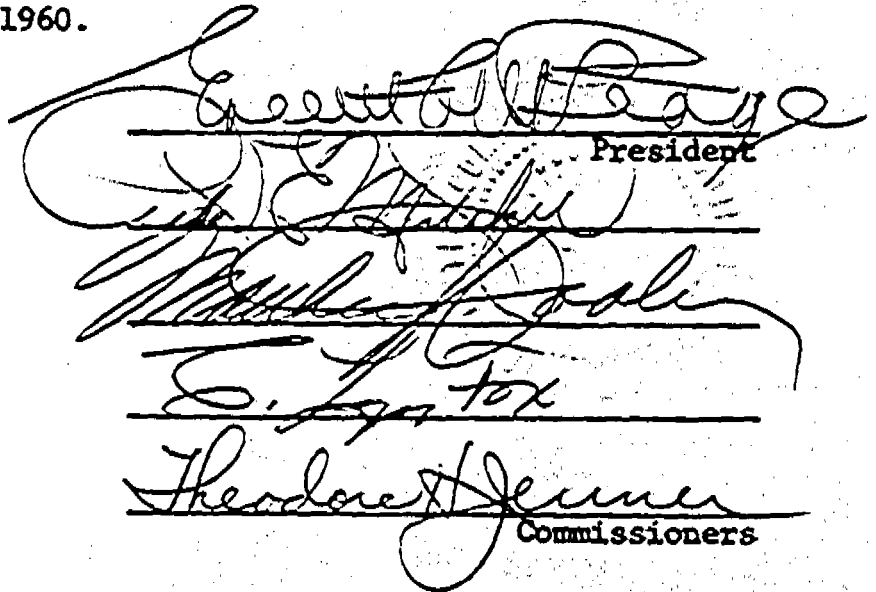 1960.
Everett C. McKeage
President
E. Mitchell
Matthew J. Dooley
C. Lyn Fox
Theodore H Jenner
Commissioners